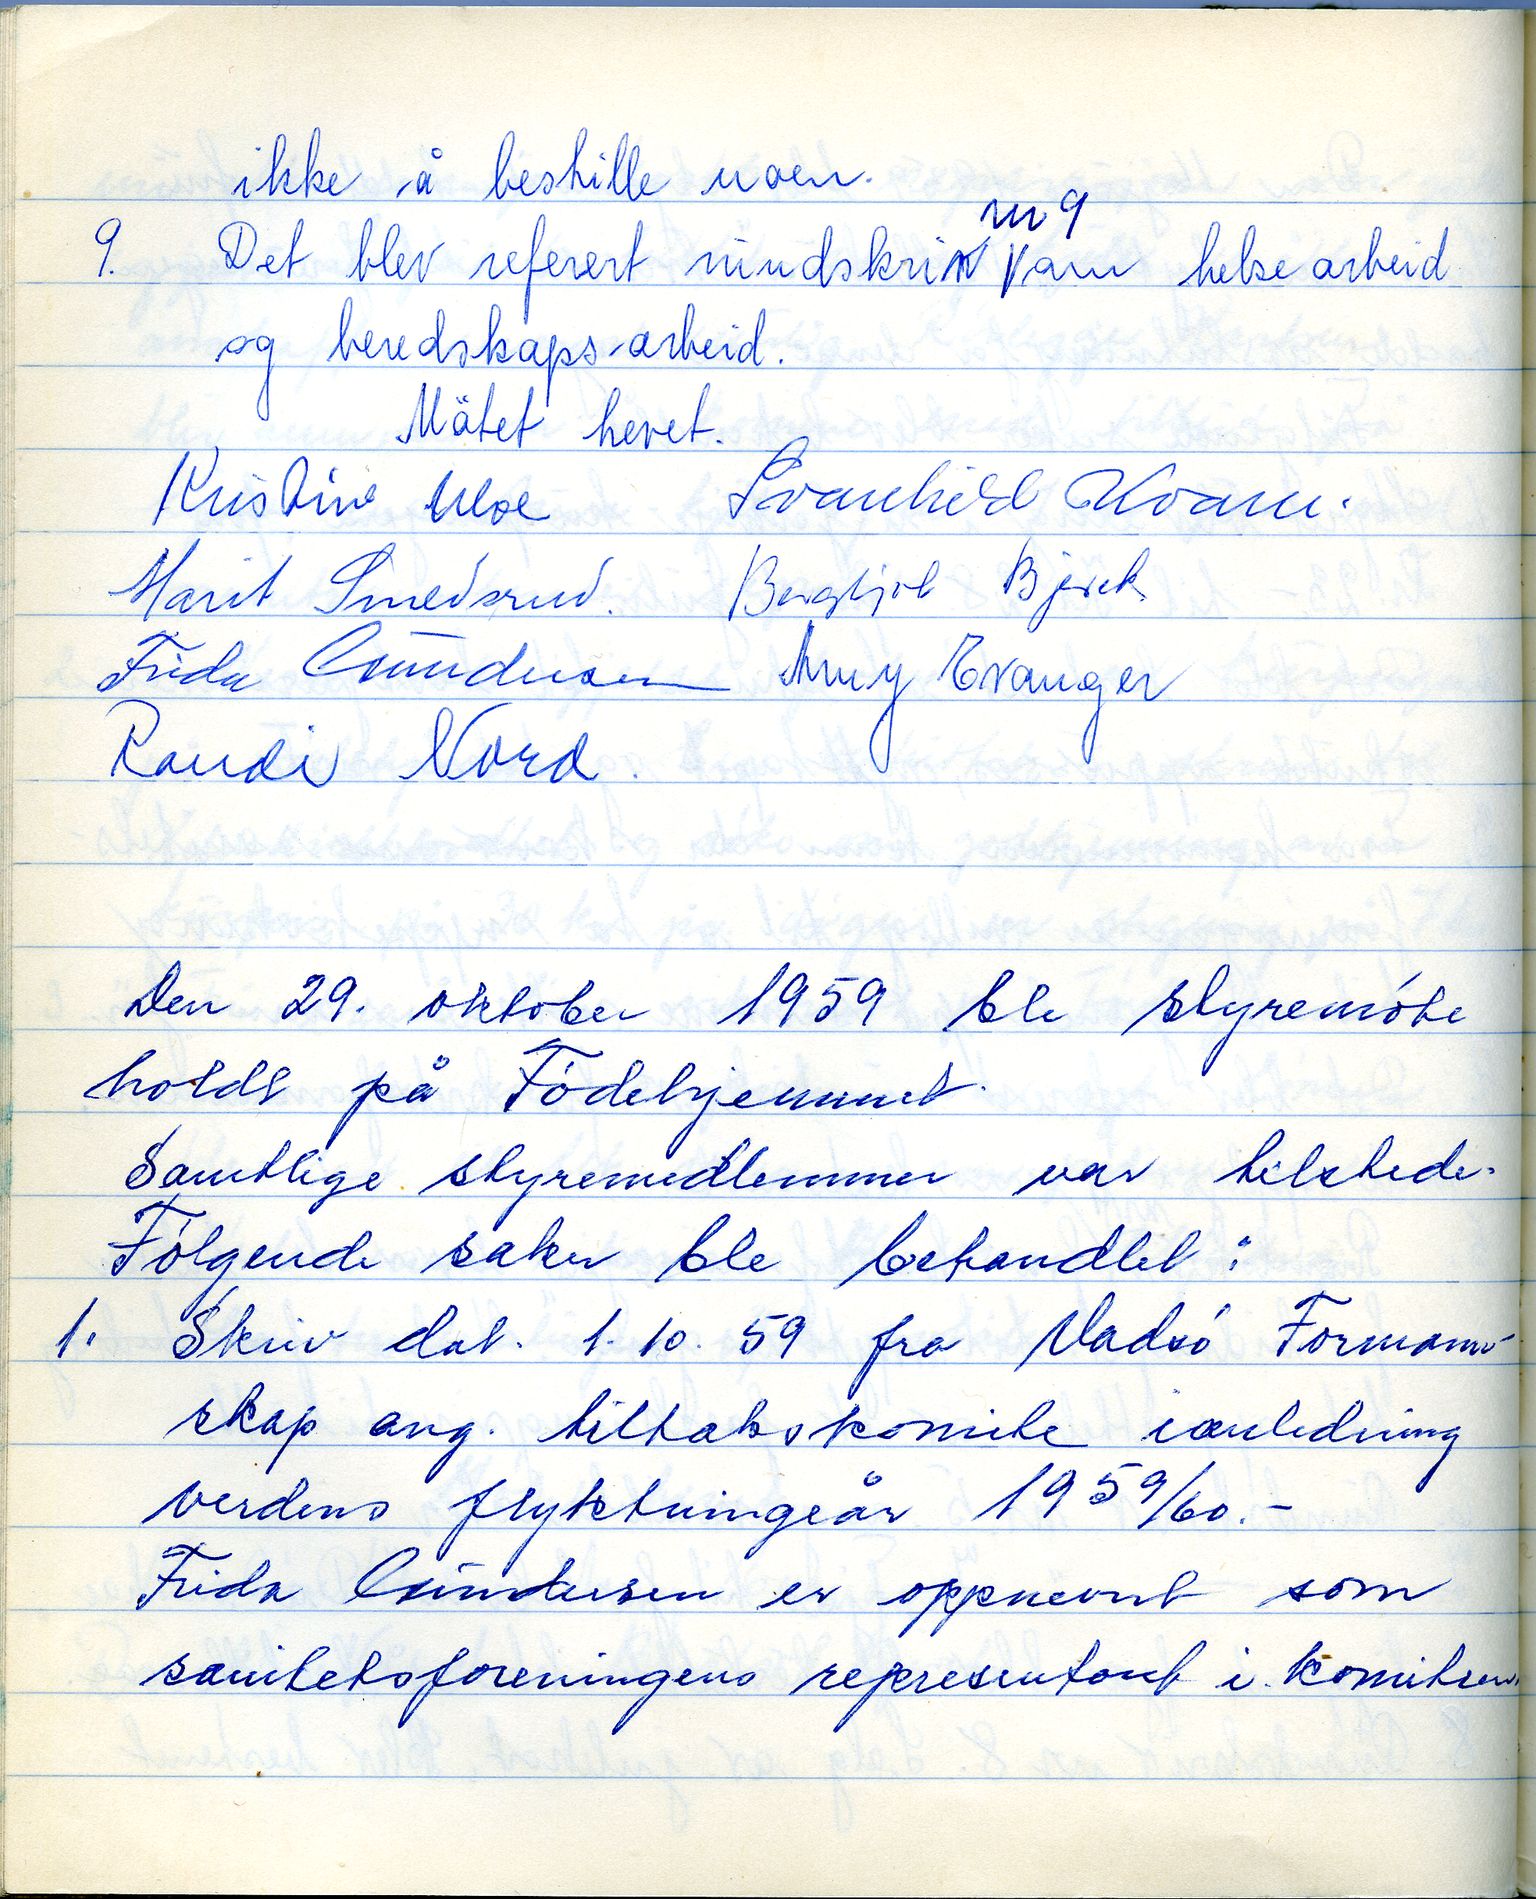 ikke å bestille noen.
nr 9
9. Det blev referert rundskriv om helsearbeid
og beredskaps-arbeid.
Mötet hevet.
Kristine Moe Svanhild Kvam.
Marit Smedsrud. Bergljot Bjørck
Frida Gundersen Amy Evanger
Randi Nord.
Den 29. oktober 1959 ble styremöte
holdt på Födehjemmet.
Samtlige styremedlemmer var tilstede.
Fölgende saker ble behandlet:
1. Skriv dat. 1.10.59 fra Vadsö Formann-
skap ang. tiltakskomite ianledning
verdens flyktningeår 1959/60.-
Frida Gundersen er oppnevnt som
sanitetsforeningens representant i komiteen.